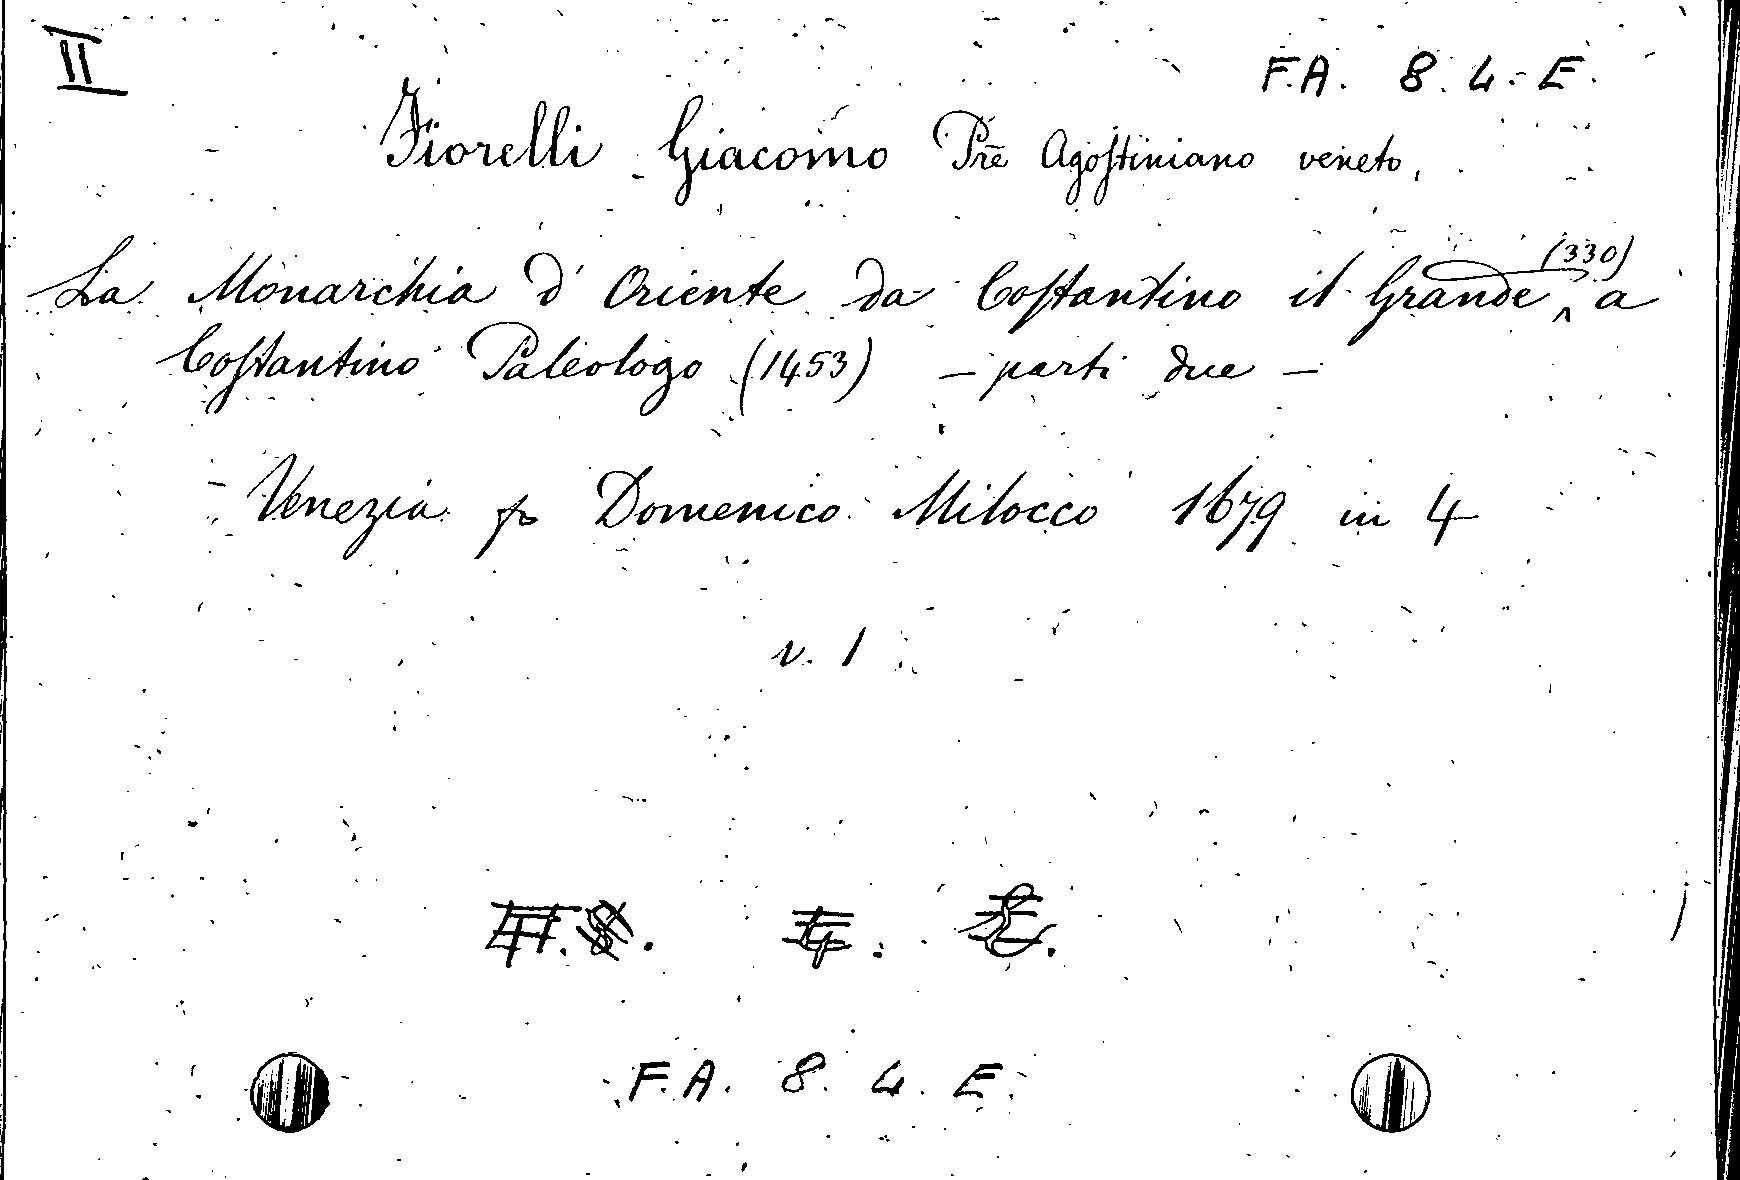 II
F.A. 8. 4. E.
Fiorelli Giacomo Prē Agostiniano veneto,
La Monarchia d' Oriente da Costantino il Grande (330) a
Costantino Paleologo (1453) – parti due –
Venezia p Domenico Milocco 1679 in 4
v. 1
F.A. 8. 4. E.